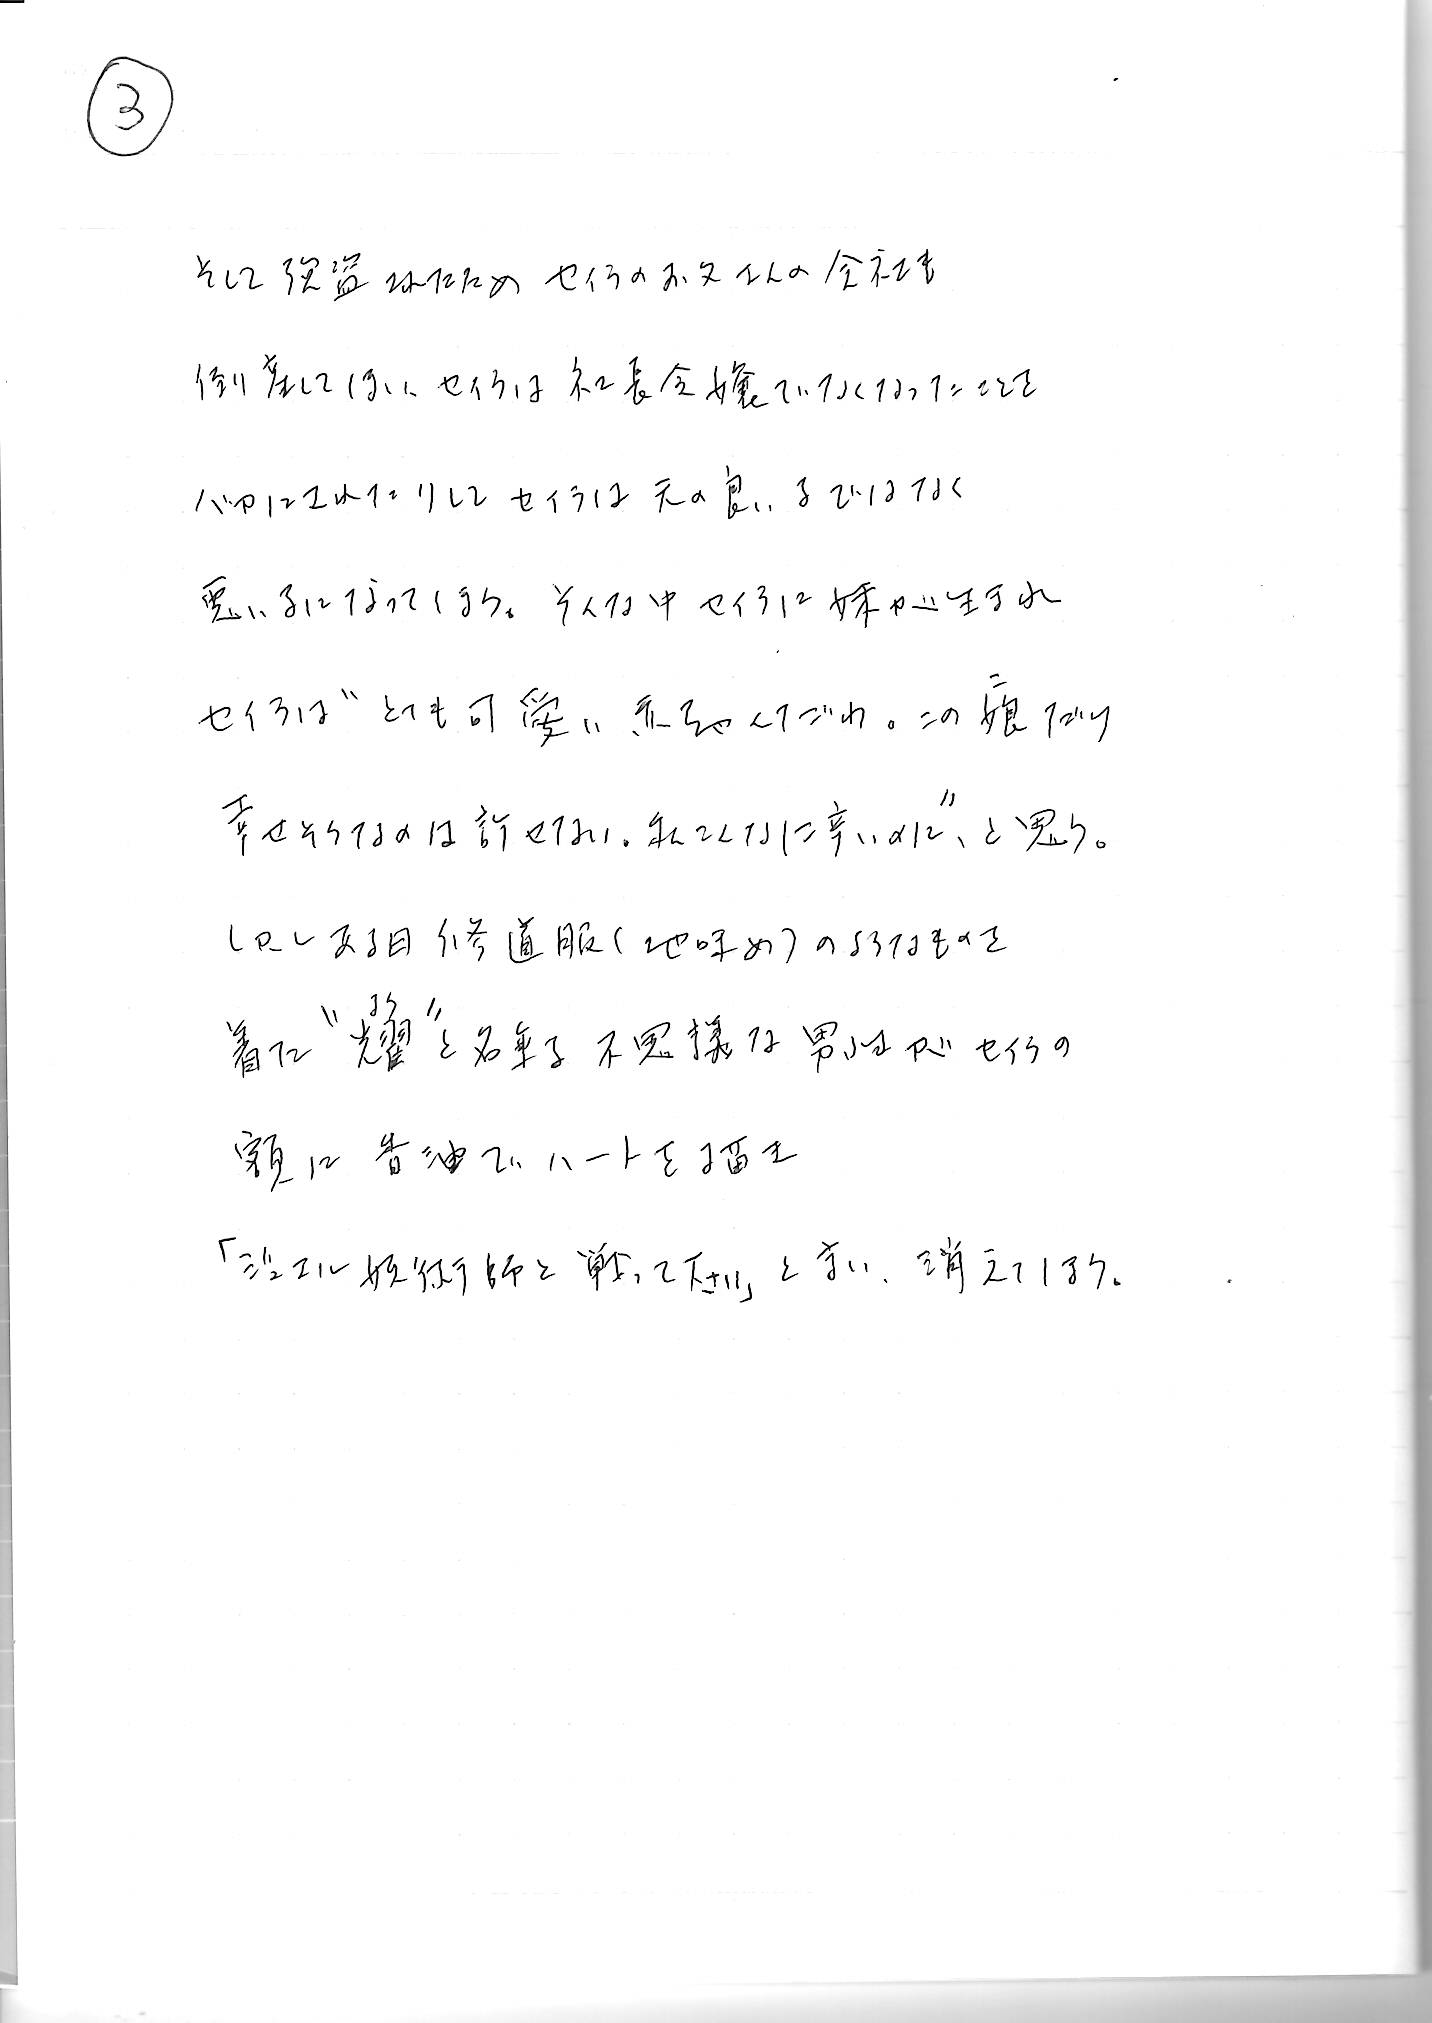 ③
そして強盗されたため セイラのお父さんの会社も
倒産してしまい、セイラは社長令嬢でなくなったことを
バカにされたりして セイラは元の良い子ではなく
悪い子になってしまう。そんな中セイラに妹が生まれ
セイラは“とても可愛い赤ちゃんだわ。この娘(こ)だけ
幸せそうなのは許せない。私こんなに辛いのに”、と思う。
しかしある日 修道服(地味め)のようなものを
着た“耀(よう)”と名乗る 不思議な男性が セイラの
額に 香油で ハートを描き
「ジュエル妖術師と戦って下さい」と言い、消えてしまう。